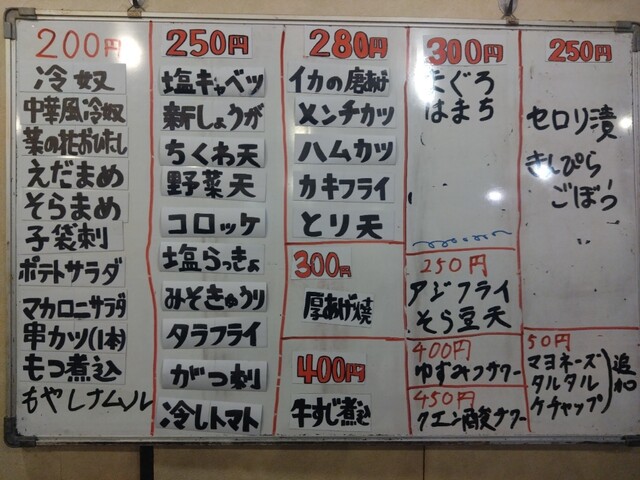 200円
冷奴
中華風冷奴
菜の花おひたし
えだまめ
そらまめ
子袋刺
ポテトサラダ
マカロニサラダ
串カツ(1本)
もつ煮込
もやしナムル
250円
塩キャベツ
新しょうが
ちくわ天
野菜天
コロッケ
塩らっきょ
みそきゅうり
タラフライ
がつ刺
冷しトマト
280円
イカの磨あげ
メンチカツ
ハムカツ
カキフライ
とり天
300円
厚あげ焼
400円
牛すじ煮込
300円
まぐろ
はまち
250円
アジフライ
そら豆天
400円
ゆずみつサワー
450円
クエン酸サワー
250円
セロリ漬
きんぴら
ごぼう
50円
マヨネーズ
タルタル
ケチャップ
追加